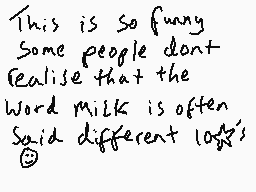 This is so funny
Some people dont
realise that the
word milk is often
said different lo☆'s
☺